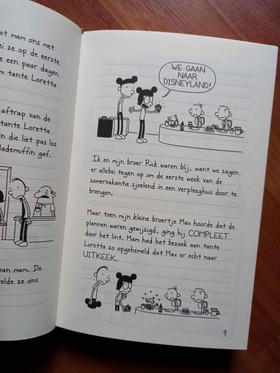 at mam ons met
ei ze op de eerste
e een paar dagen
n tante Loretta
aftrap van de
tante Loretta
en die liet pas los
lademuffin gaf.
an mam. De
elde ze ons
WE GAAN
NAAR
DISNEYLAND!
Ik en mijn broer Rick waren blij, want we zagen
er allebei tegen op om de eerste week van de
zomervakantie sjoelend in een verpleeghuis door te
brengen.
Maar toen mijn kleine broertje Max hoorde dat de
plannen waren gewijzigd, ging hij COMPLEET
door het lint. Mam had het bezoek aan tante
Loretta zo opgehemeld dat Max er echt naar
UITKEEK.
9